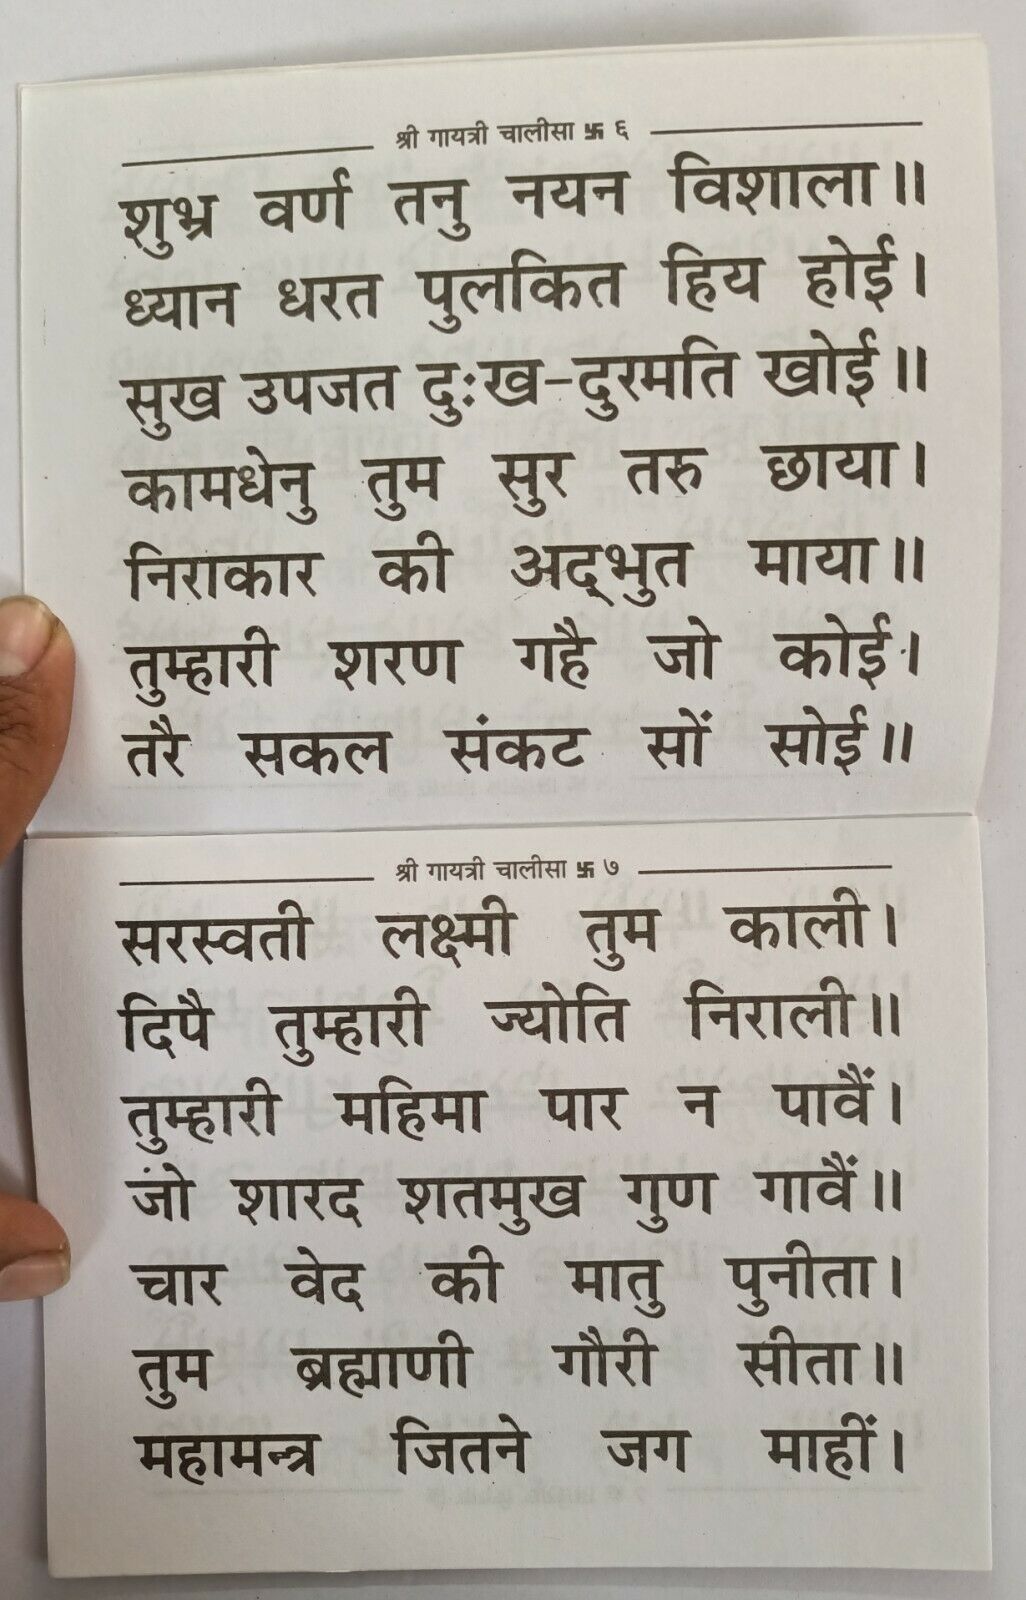 श्री गायत्री चालीसा 卐 ६
शुभ्र वर्ण तनु नयन विशाला॥
ध्यान धरत पुलकित हिय होई।
सुख उपजत दुःख-दुरमति खोई॥
कामधेनु तुम सुर तरु छाया।
निराकार की अद्‌भुत माया॥
तुम्हारी शरण गहै जो कोई।
तरै सकल संकट सों सोई॥
श्री गायत्री चालीसा 卐 ७
सरस्वती लक्ष्मी तुम काली।
दिपै तुम्हारी ज्योति निराली॥
तुम्हारी महिमा पार न पावैं।
जो शारद शतमुख गुण गावैं॥
चार वेद की मातु पुनीता।
तुम ब्रह्माणी गौरी सीता॥
महामन्त्र जितने जग माहीं।